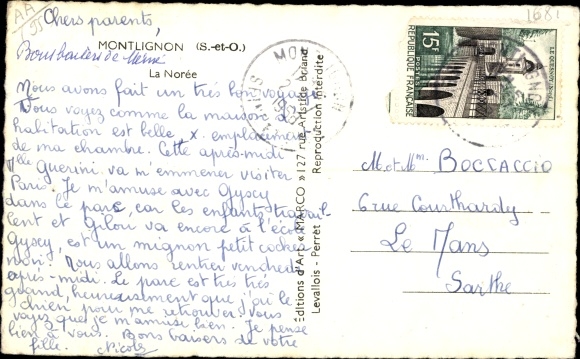 Chers parents,
MONTLIGNON (S.-et-O.)
La Norée
Bons baisers de
Nous avons fait un très bon voyage
Vous voyez comme la maison d'
habitation est belle, x. emplacement
de ma chambre. Cette après-midi
Mlle Guerini va m'emmener visiter
Paris. Je m'amuse avec Gyscy
dans le parc, car les enfants travail
lent et Gilou va encore à l'école
Gyscy, est un mignon petit cocker
noir. Nous allons rentrer vendredi
après-midi. Le parc est très très
grand, heureusement que j'ai le
chien pour me retrouver. Vous
voyez que je m'amuse bien. Je pense
bien à vous. Bons baisers de votre
fille. Nicole
Editions d'Art « MARCO » 127 rue Aristide Briand
Levallois - Perret
Reproduction interdite
1681
15F
REPUBLIQUE FRANÇAISE
LE QUESNOY
M. et Mme. BOCCACCIO
6 rue Courthardy
Le Mans
Sarthe